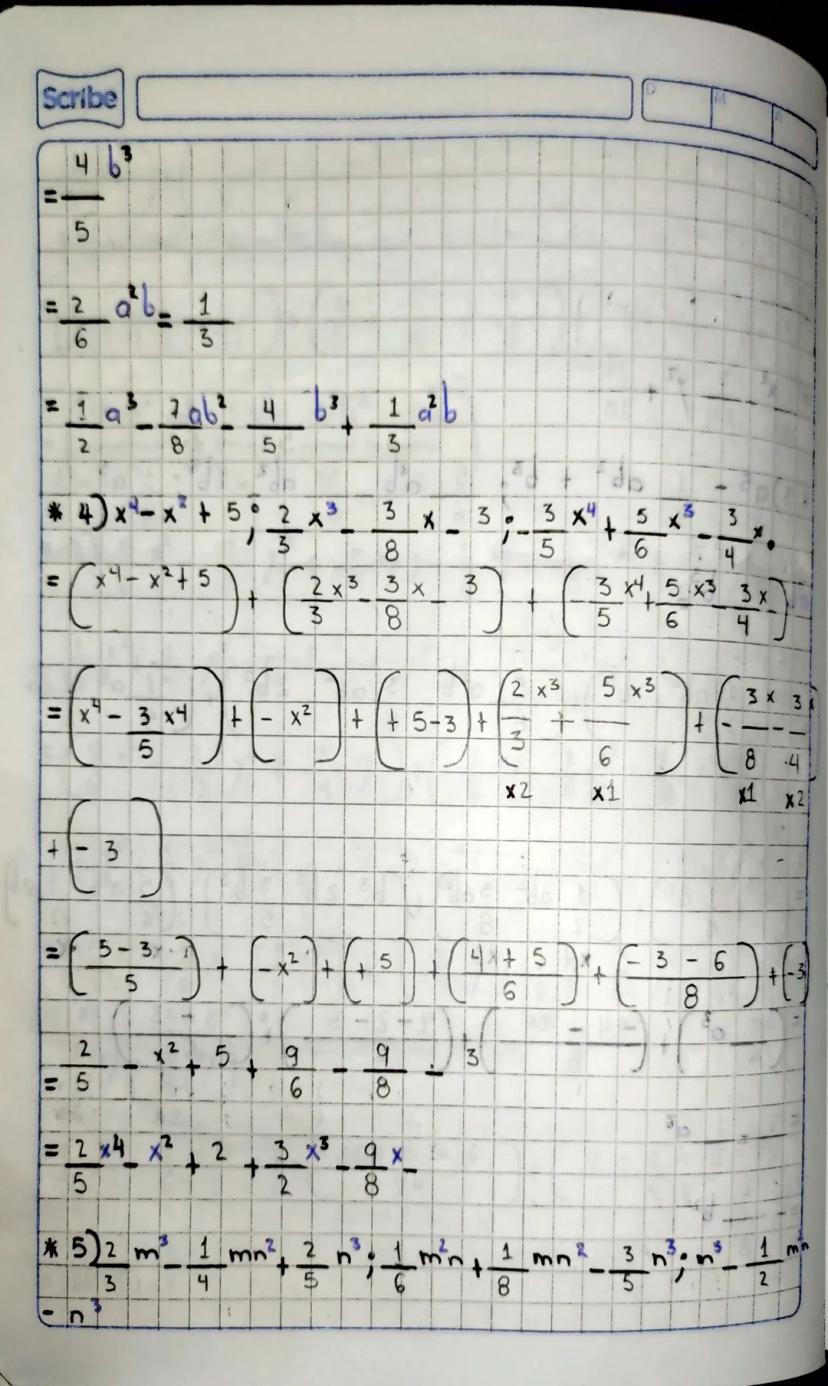 Scribe
= 4/5 b³
= 2/6 a²b = 1/3
= 1/2 a³ - 7/8 ab² - 4/5 b³ + 1/3 a²b
* 4) x⁴ - x² + 5; 2/3 x³ - 3/8 x - 3; - 3/5 x⁴ + 5/6 x³ - 3/4 x.
= (x⁴ - x² + 5) + (2/3 x³ - 3/8 x - 3) + (- 3/5 x⁴ + 5/6 x³ - 3/4 x)
= (x⁴ - 3/5 x⁴) + (- x²) + (+ 5-3) + (2/3 x³ + 5/6 x³) + (- 3/8 x - 3/4 x
x2 x1 x1 x2
+ (- 3)
= (5-3/5) + (-x²) + (+ 5) + (4x + 5/6) + (- 3 - 6/8) + (-3)
= 2/5 - x² + 5 + 9/6 - 9/8 - 3
= 2/5 x⁴ - x² + 2 + 3/2 x³ - 9/8 x -
* 5) 2/3 m³ - 1/4 mn² + 2/5 n³; 1/6 m²n + 1/8 mn² - 3/5 n³; n³ - 1/2 m²n
- n³